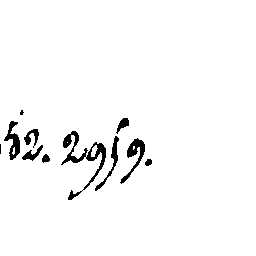 52. 2959.